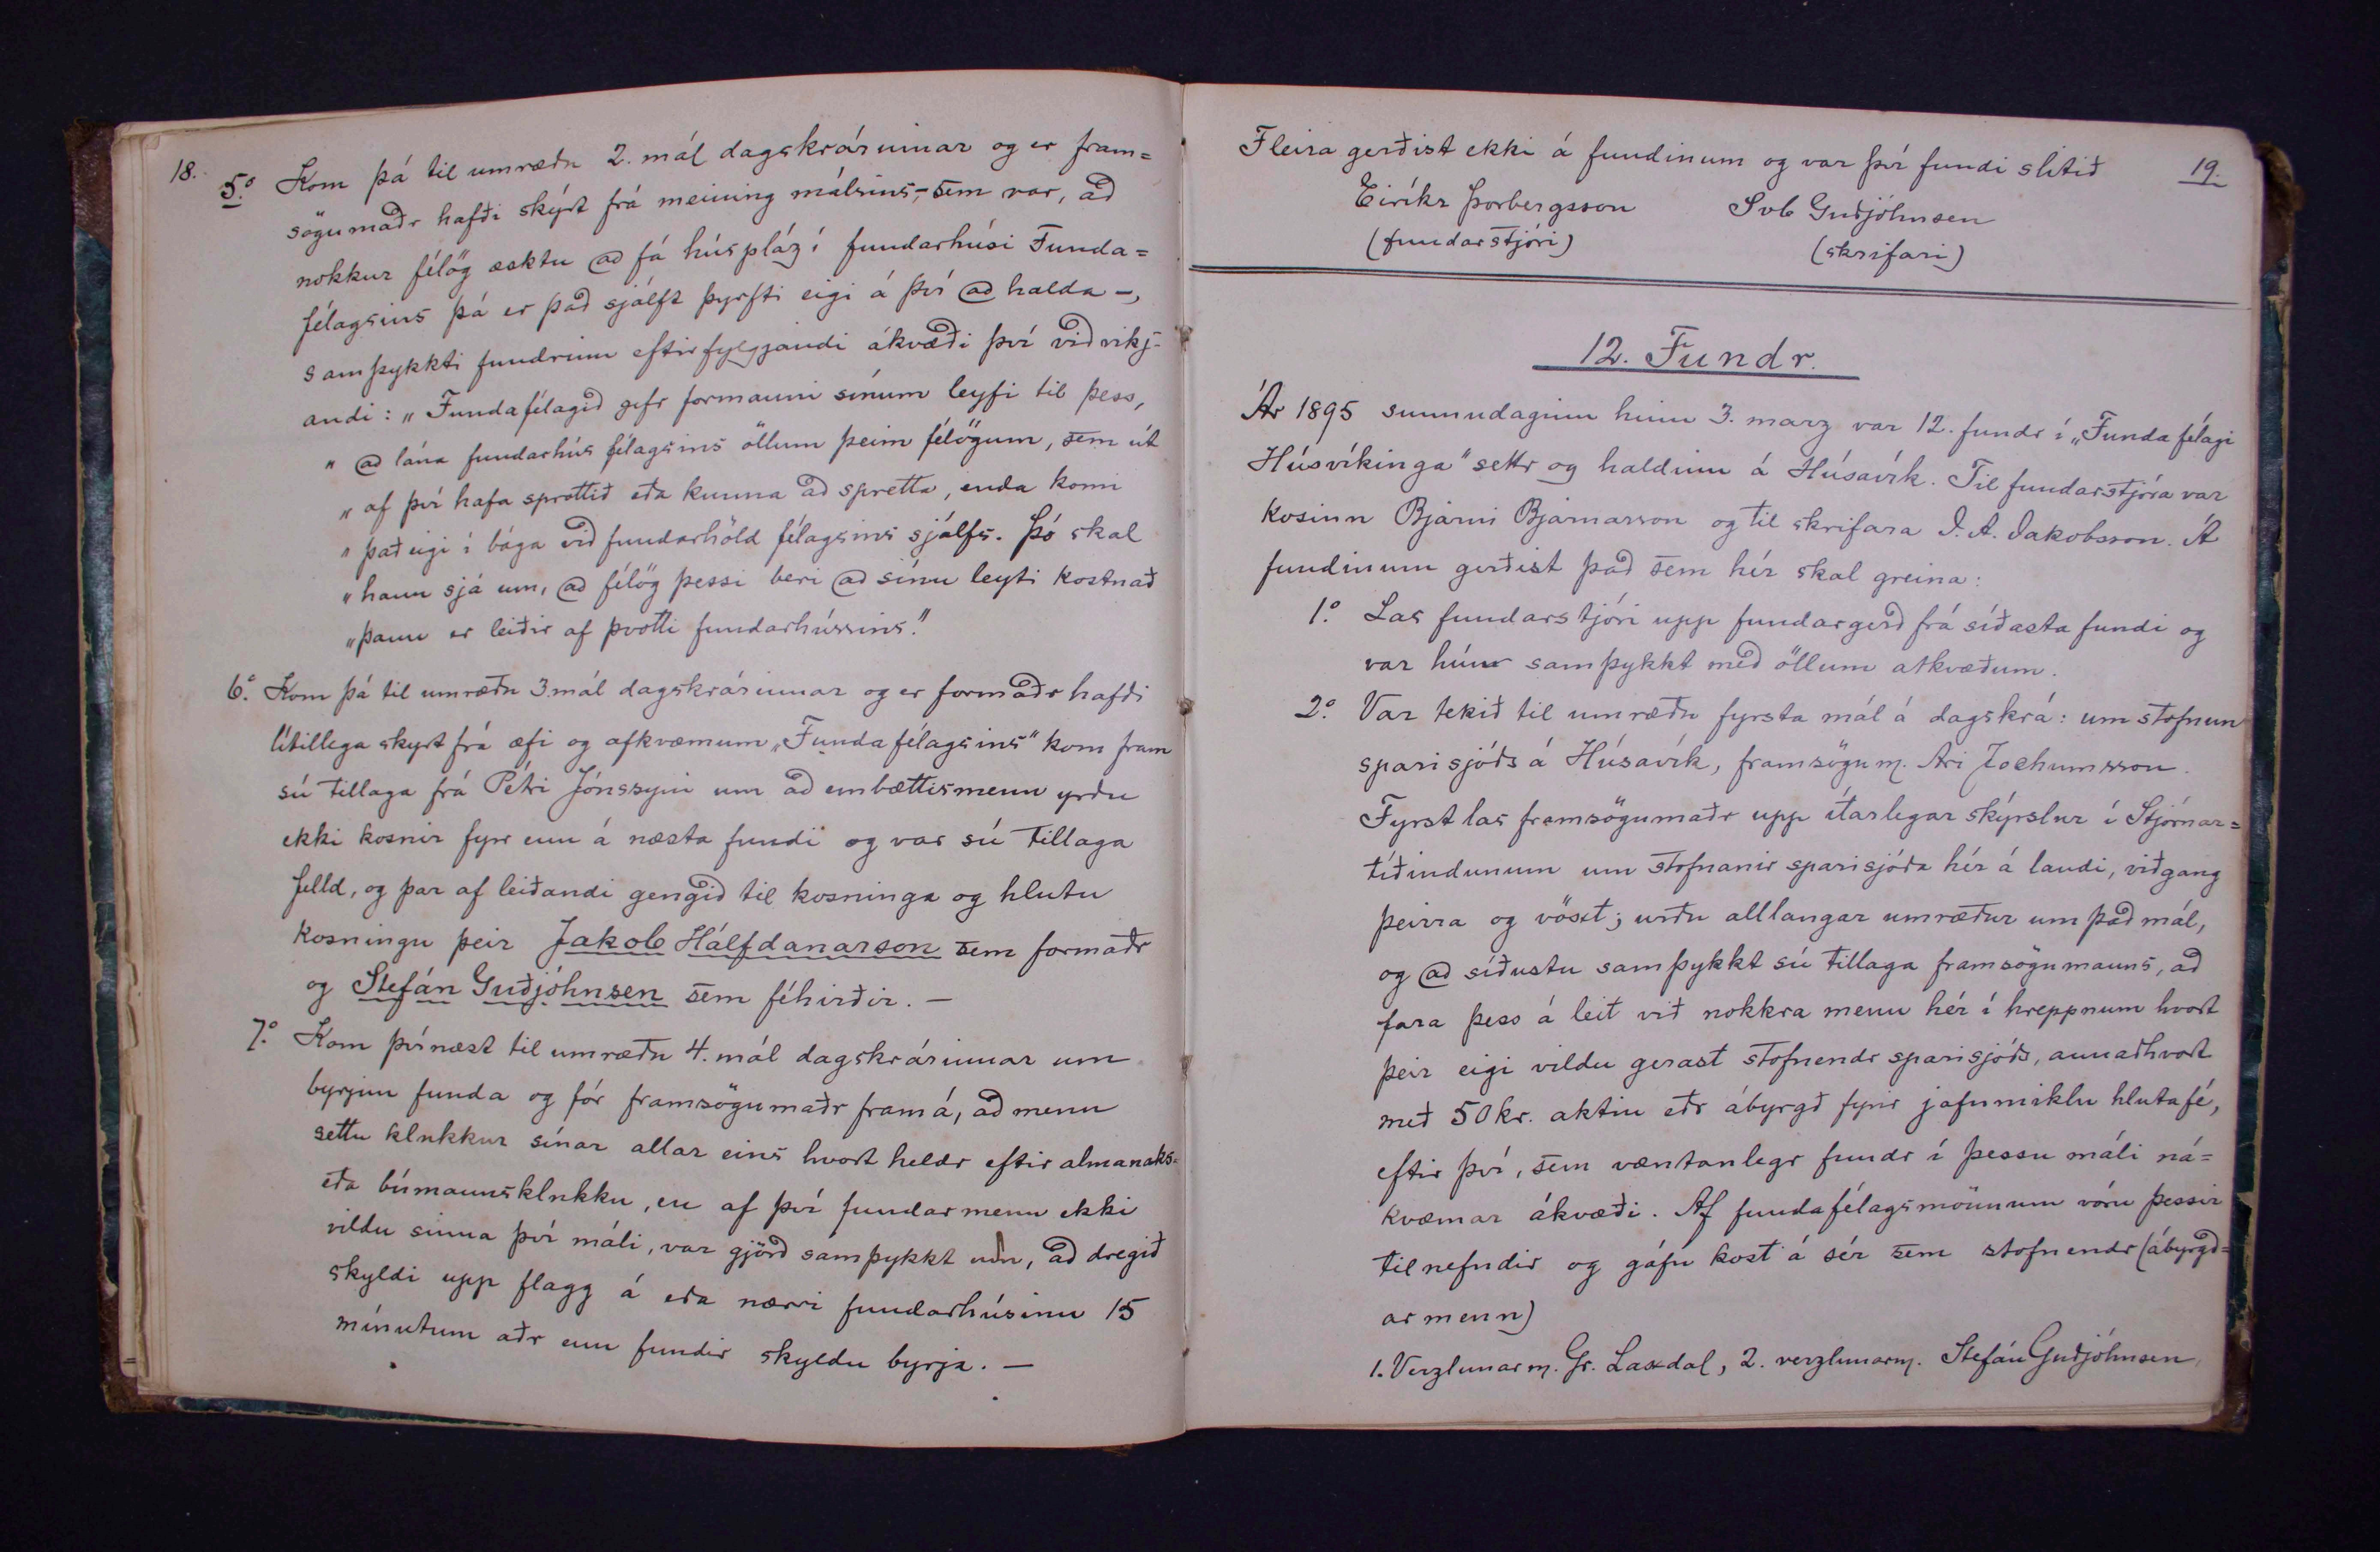 18.
5.o Kom þá til umræðu 2. mál dagskrárinnar og er fram=
sögumaðr hafði skýrt frá meining málsins, - sem var, að
nokkur félög æsktu að fá húspláz í fundarhúsi Funda=
félagsins þá er það sjálft þyrfti eigi á því að halda -,
samþykkti fundrinn eftirfylgjandi ákvæði því viðvikj-
andi: „Fundafélagið gefr formanni sínum leyfi til þess,
„ að lána fundarhús félagsins öllum þeim félögum, sem út
„ af því hafa sprottið eða kunna að spretta, enda komi
„ það eigi í bága við fundarhöld félagsins sjálfs. Þó skal
„ hann sjá um, að félög þessi beri að sínu leyti kostnað
„ þann er leiðir af þvotti fundarhússins."
6.o Kom þá til umræðu 3. mál dagskrárinnar og er formaðr hafði
lítillega skyrt frá æfi og afkvæmum „Fundafélagsins" kom fram
sú tillaga frá Pétri Jónssyni um að embættismenn yrðu
ekki kosnir fyr enn á næsta fundi og var sú tillaga
felld, og þar af leiðandi gengið til kosninga og hlutu
kosningu þeir Jakob Hálfdanarson sem formaðr
og Stefán Guðjóhnsen sem féhirðir. -
7.o Kom þvínæst til umræðu 4. mál dagskrárinnar um
byrjun funda og fór framsögumaðr fram á, að menn
settu klukkur sínar allar eins hvort heldr eftir almanaks=
eða búmannsklukku, en af því fundarmenn ekki
vildu sinna því máli, var gjörð samþykkt um, að dregið
skyldi upp flagg á eða nærri fundarhúsinu 15
mínutum aðr enn fundir skyldu byrja. -
19.
Fleira gerðist ekki á fundinum og var því fundi slitið
Eiríkr Þorbergsson Svb Guðjóhnsen
(fundarstjóri) (skrifari)
12. Fundr.
Ár 1895 sunnudaginn hinn 3. marz var 12. fundr í „Fundafélagi
Húsvíkinga" settr og haldinn á Húsavík. Til fundarstjóra var
kosinn Bjarni Bjarnarson og til skrifara J. A. Jakobsson. Á
fundinum gerðist það sem hér skal greina:
1.o Las fundarstjóri upp fundargerð frá síðasta fundi og
var hún samþykkt með öllum atkvæðum.
2.o Var tekið til umræðu fyrsta mál á dagskrá: um stofnun
sparisjóðs á Húsavík, framsögum. Ari Jochumsson.
Fyrst las framsögumaðr upp ítarlegar skýrslur í Stjórnar=
tíðindunum um stofnanir sparisjóða hér á landi, viðgang
þeirra og vöxt; urðu alllangar umræður um það mál,
og að síðustu samþykkt sú tillaga framsögumanns, að
fara þess á leit við nokkra menn hér í hreppnum hvort
þeir eigi vildu gerast stofnendr sparisjóðs, annaðhvort
með 50 kr. aktiu eðr ábyrgð fyrir jafnmiklu hlutafé,
eftir því, sem væntanlegr fundr í þessu máli ná=
kvæmar ákvæði. Af fundafélagsmönnum vóru þessir
tilnefndir og gáfu kost á sér sem stofnendr (ábyrgð=
armenn)
1. Verzlunarm. Gr. Laxdal, 2. verzlunarm. Stefán Guðjóhnsen,